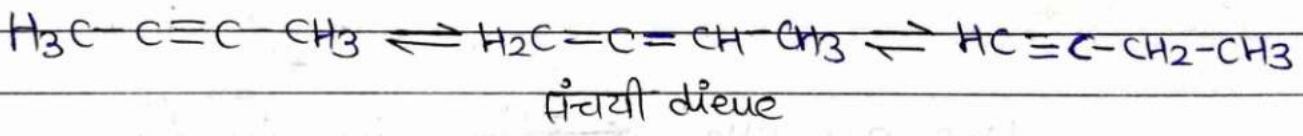 H3C-C≡C-CH3 ⇌ H2C=C=CH-CH3 ⇌ HC≡C-CH2-CH3
संचयी diene